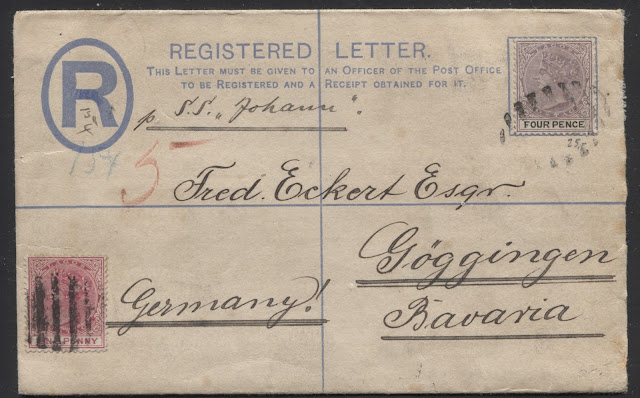 REGISTERED LETTER.
THIS LETTER MUST BE GIVEN TO AN OFFICER OF THE POST OFFICE
TO BE REGISTERED AND A RECEIPT OBTAINED FOR IT.
R
154
p S.S. „Johann".
FOUR PENCE
REGISTERED
154
5
Fred. Eckert Esqr.
Göggingen
Germany!
Bavaria
PENNY